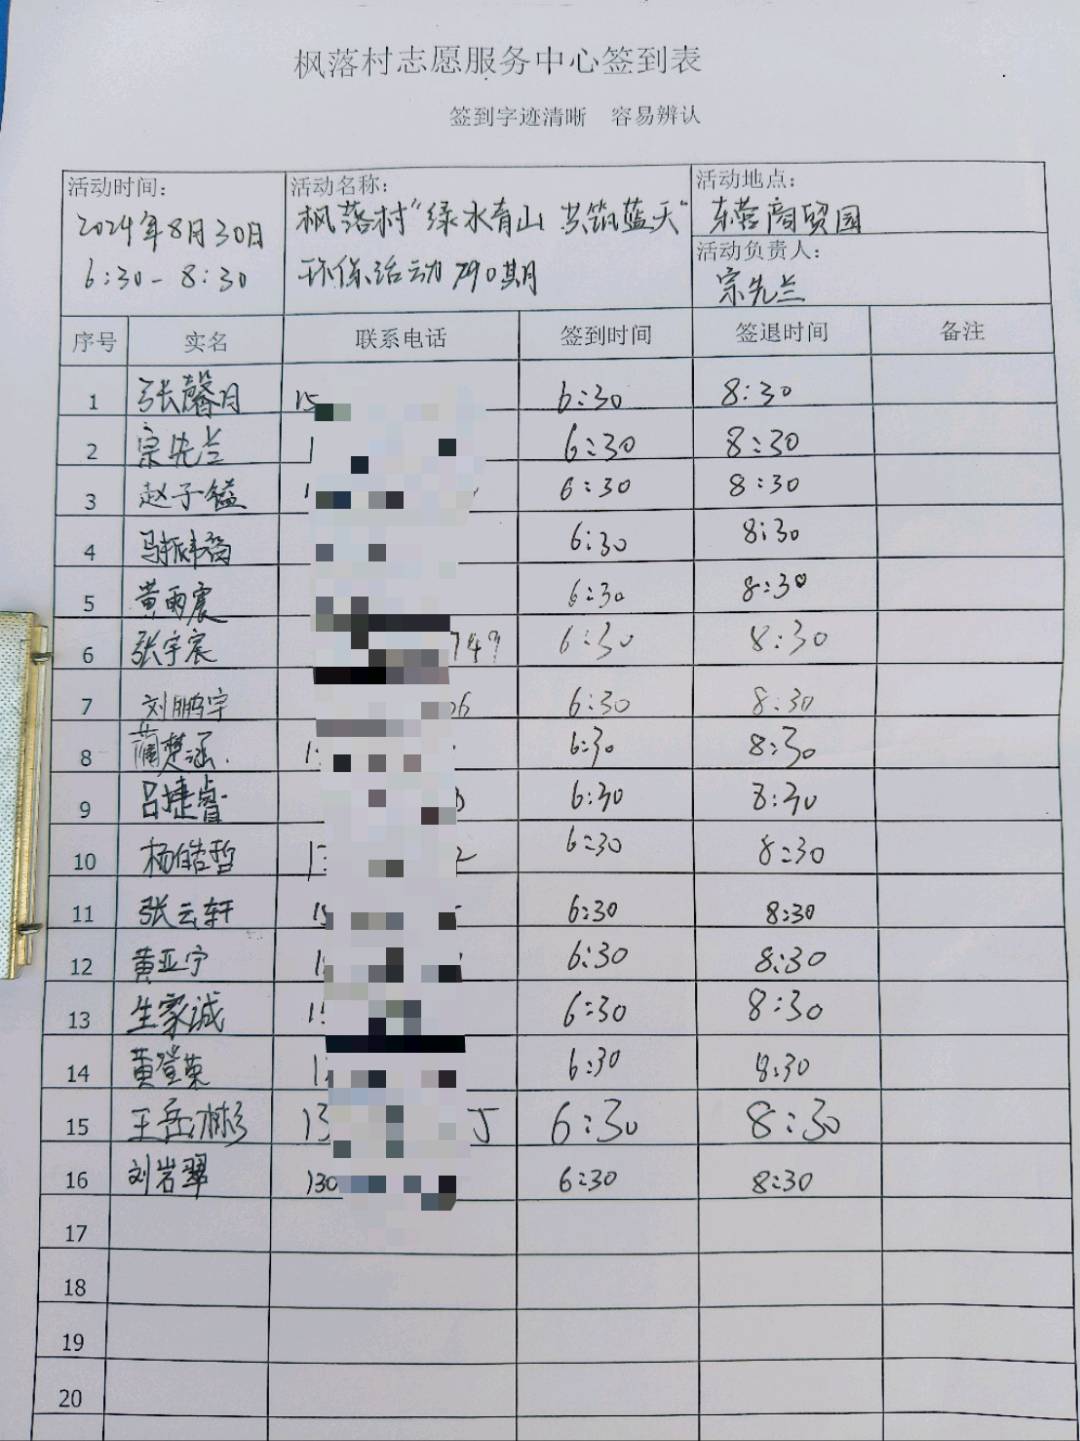 枫落村志愿服务中心签到表
签到字迹清晰 容易辨认
活动时间： 活动名称： 活动地点：
2024年8月30日 枫落村"绿水青山 共筑蓝天" 东营商贸园
6:30-8:30 环保活动790期 活动负责人：
宗先兰
序号 实名 联系电话 签到时间 签退时间 备注
1 张馨月 15 6:30 8:30
2 宗先兰 1 6:30 8:30
3 赵子镒 6:30 8:30
4 6:30 8:30
5 黄雨震 6:30 8:30
6 张宇宸 747 6:30 8:30
7 刘鹏宇 06 6:30 8:30
8 蔺楚涵 6:30 8:30
9 吕捷睿 6:30 8:30
10 杨皓哲 2 6:30 8:30
11 张云轩 15 6:30 8:30
12 黄亚宁 1 6:30 8:30
13 生家诚 15 6:30 8:30
14 黄登荣 1 6:30 8:30
15 王岳彬 13 6:30 8:30
16 刘岩翠 130 6:30 8:30
17
18
19
20